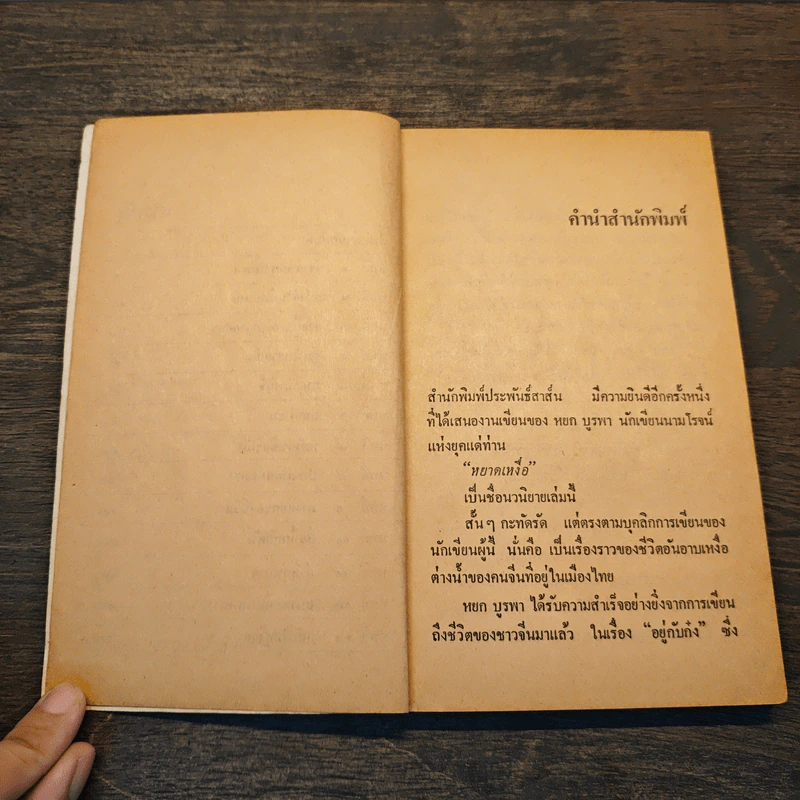 คำนำสำนักพิมพ์
สำนักพิมพ์ประพันธ์สาส์น มีความยินดีอีกครั้งหนึ่ง
ที่ได้เสนองานเขียนของ หยก บูรพา นักเขียนนามโรจน์
แห่งยุคแด่ท่าน
“หยาดเหงื่อ”
เป็นชื่อนวนิยายเล่มนี้
สั้น ๆ กะทัดรัด แต่ตรงตามบุคลิกการเขียนของ
นักเขียนผู้นี้ นั่นคือ เป็นเรื่องราวของชีวิตอันอาบเหงื่อ
ต่างน้ำของคนจีนที่อยู่ในเมืองไทย
หยก บูรพา ได้รับความสำเร็จอย่างยิ่งจากการเขียน
ถึงชีวิตของชาวจีนมาแล้ว ในเรื่อง “อยู่กับก๋ง” ซึ่ง